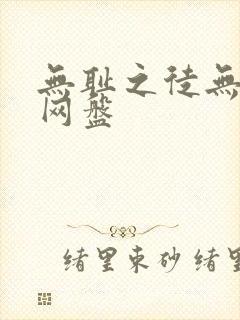 無耻之徒無
网盤
绪里束砂绪里